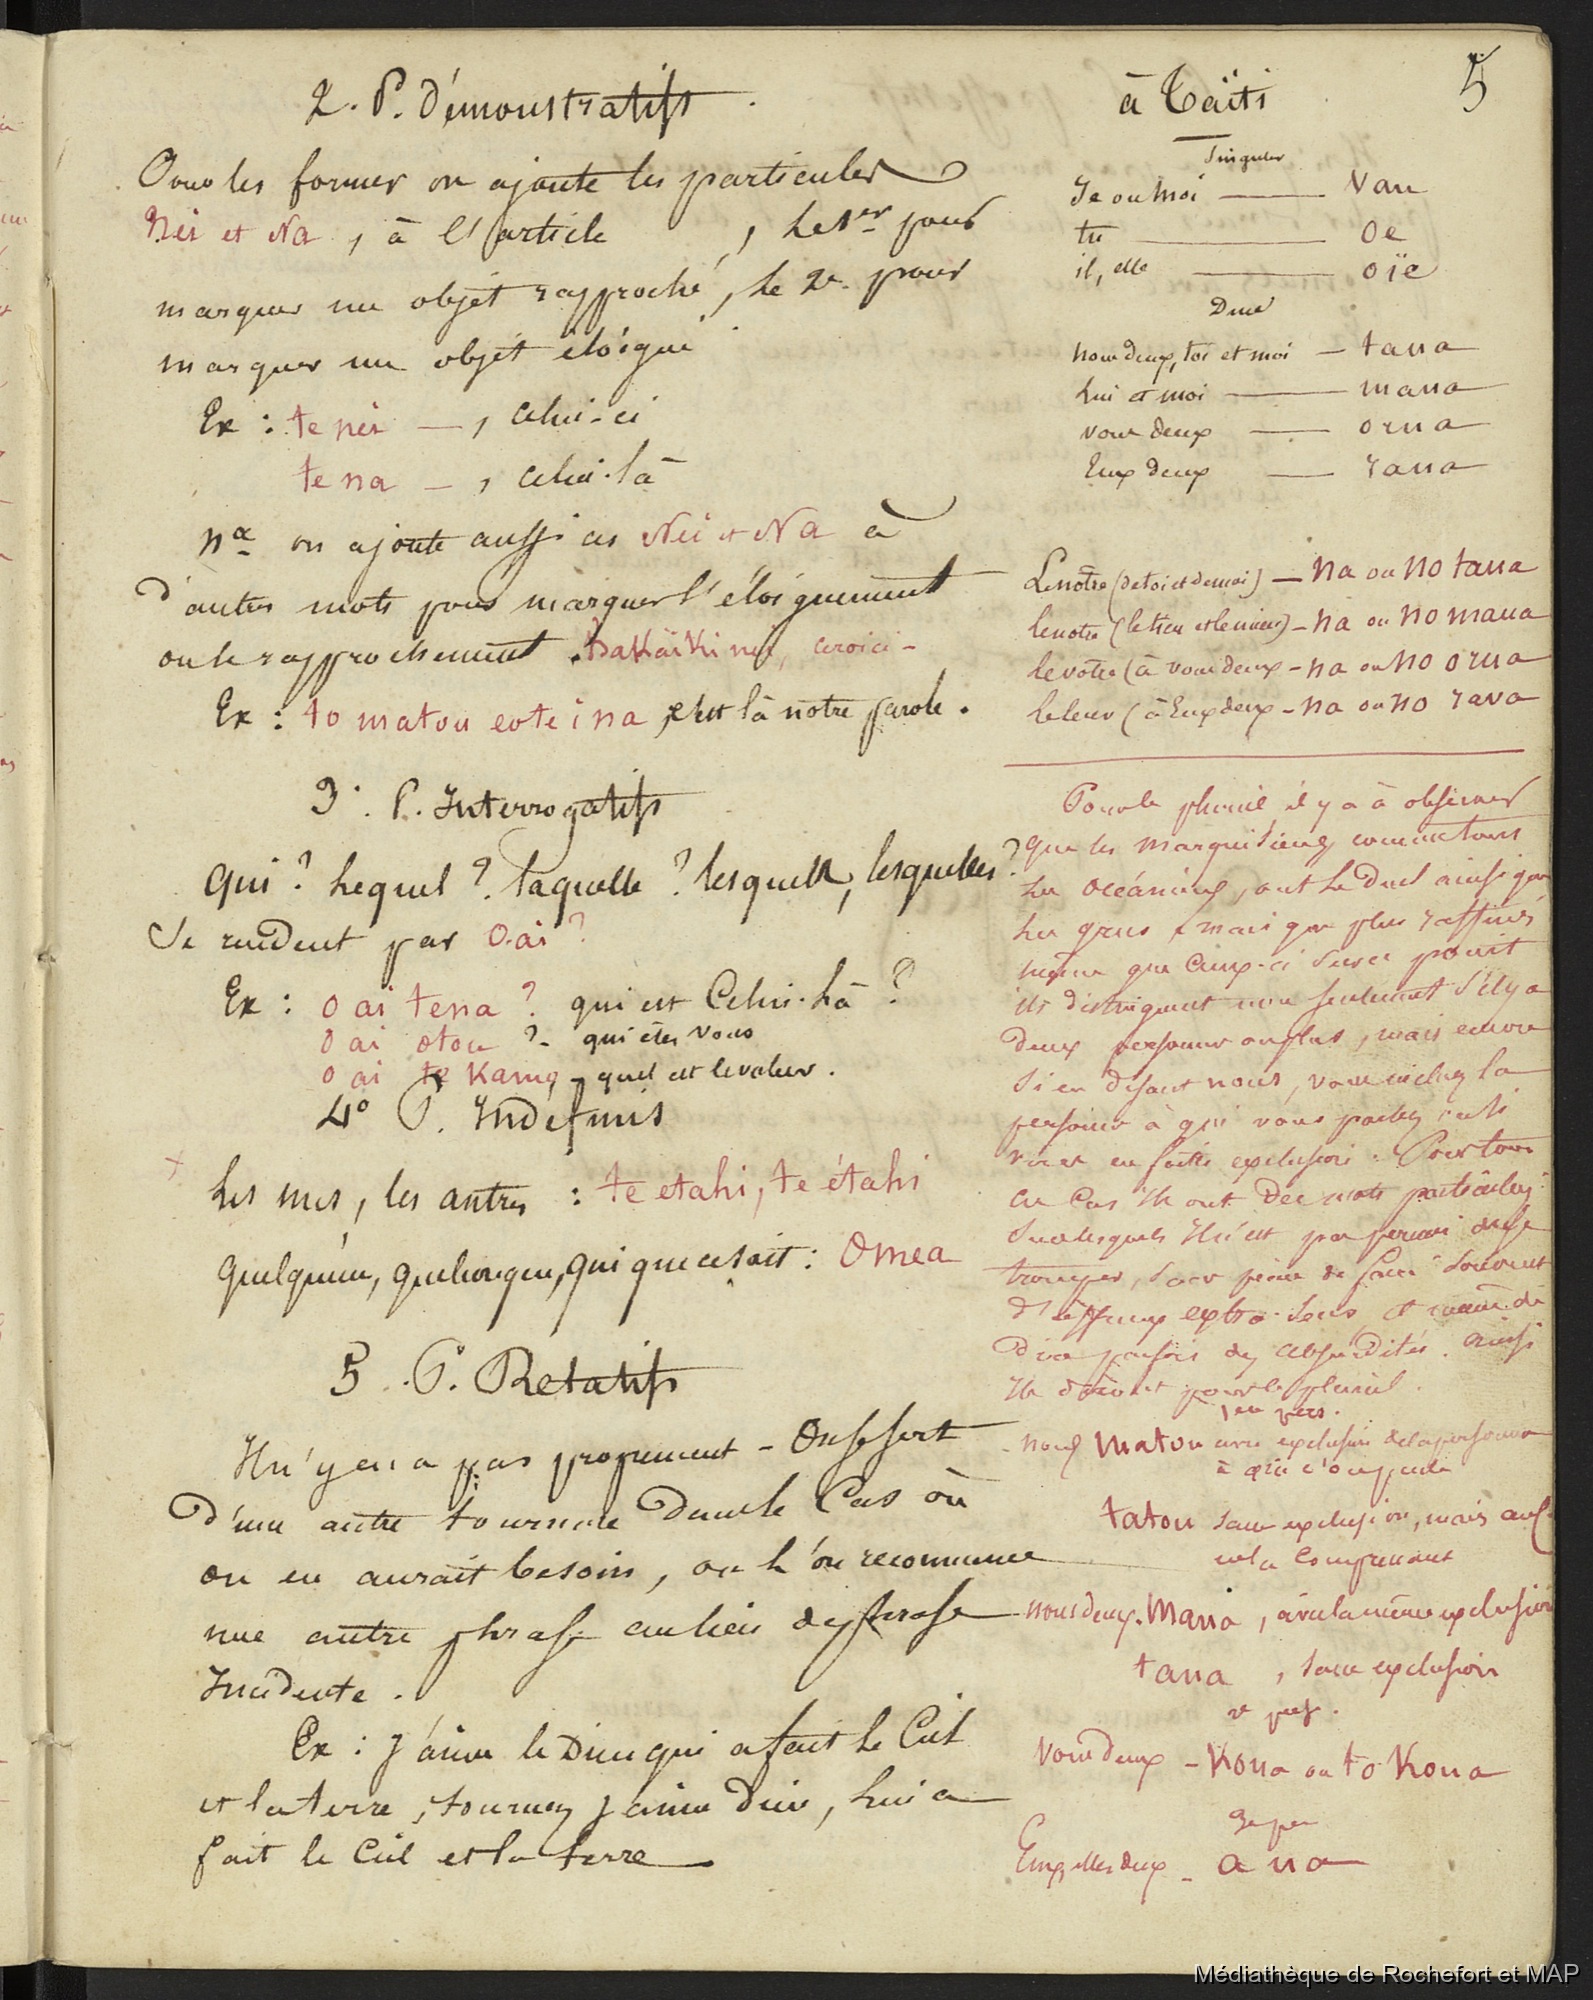 5
2. P. Démonstratifs
Pour les former on ajoute les particules
Nei et Na, à l'article , le 1er pour
marquer un objet rapproché, le 2e pour
marquer un objet éloigné
Ex : te nei — , celui-ci
te na — , celui-là
na on ajoute aussi ces Nei et Na à
d'autres mots pour marquer l'éloignement
ou le rapprochement. hakaïki nei, ce roi ci -
Ex : to matou eo teina, c'est là notre parole.
3°. P. Interrogatifs
Qui ? Lequel ? Laquelle ? lesquels, lesquelles ?
Se rendent par O ai ?
Ex : O ai tena ? qui est Celui-là ?
O ai otou ? - qui êtes vous
O ai te Kamo - quel est le voleur.
4° P. Indéfinis
+ Les uns, les autres : te etahi, te étahi
Quelqu'un, quelconque, qui que ce soit : Omea
5. P. Relatifs
Il n'y en a pas proprement - On se sert
d'une autre tournure dans le Cas où
on en aurait besoin, ou l'on recommence
une autre phrase au lieu de phrase
Incidente.
Ex : J'aime le Dieu qui a fait le Ciel
et la terre, tournez J'aime Dieu, lui a
fait le Ciel et la terre
à Taïti
Singulier
Je ou Moi — Vau
tu — Oe
il, elle — oïe
Duel
nous deux, toi et moi — taua
lui et moi — maua
vous deux — orua
Eux deux — raua
Le notre (de toi et de moi) — Na ou No taua
le notre (le tien et le mien) - Na ou No maua
le votre (à vous deux - na ou No orua
le leur (à Eux deux - na ou no raua
Pour le pluriel il y a à observer
que les marquisiens comme tous
les Océaniens, ont le duel ainsi que
les grecs, mais que plus raffinés
même que Ceux-ci sur ce point
ils distinguent non seulement s'il y a
deux personnes ou plus, mais encore
Si en disant nous, vous incluez la
personne à qui vous parlez, ou si
vous en faites exclusion. Pour tous
ce Cas ils ont des mots particuliers
Sur lesquels il n'est pas permis de se
tromper, sous peine de faire souvent
d'affreux contre-sens, et même de
dire parfois des absurdités. Ainsi
Ils disent pour le pluriel.
1ere pers.
nous Matou avec exclusion de la personne
à qui l'on parle
tatou sans exclusion, mais au
en la Comprenant
nous deux. Maua, avec la même exclusion
taua , sans exclusion
2e pers.
Vous deux - Koua ou to Koua
3e per
Eux, elles deux - aua